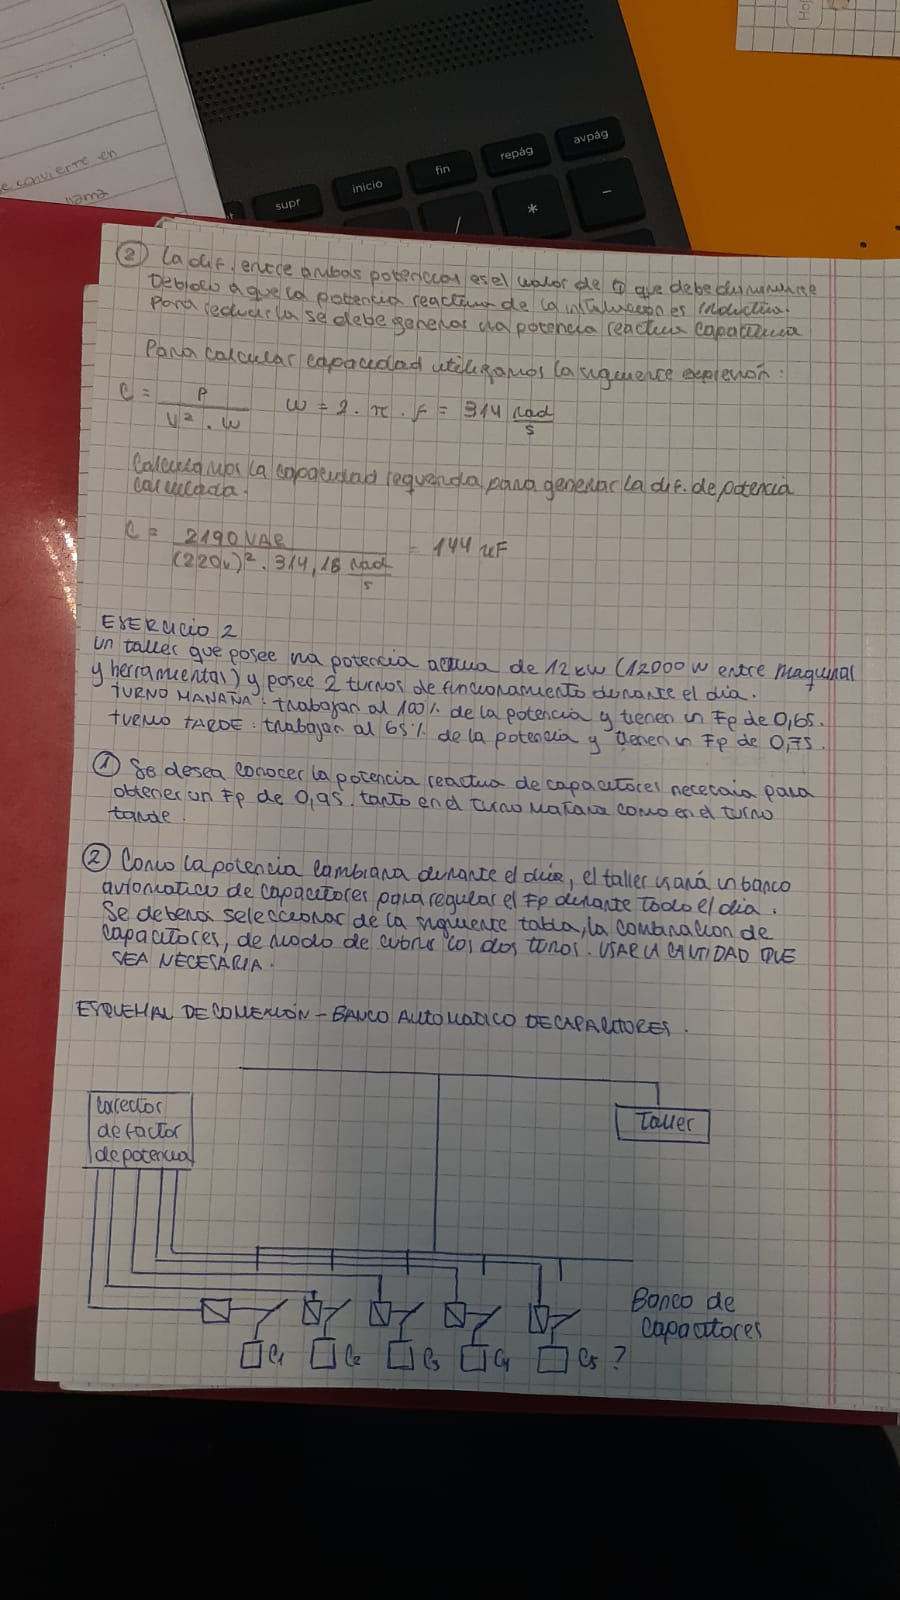 Hoj
e convierte en
llama
supr
inicio
fin
repág
avpág
/
*
-
② La dif. entre ambas potencias es el valor de Q que debe disminuirse
Debido a que la potencia reactiva de la instalación es inductiva.
Para reducirla se debe generar una potencia reactiva capacitiva
Para calcular capacidad utilizamos la siguiente expresión:
C = P / V² . W    W = 2 . π . F = 314 rad/s
Calculamos la capacidad requerida para generar la dif. de potencia
calculada.
C = 2190 VAR / (220V)² . 314,16 rad/s = 144 uF
EJERCICIO 2
Un taller que posee una potencia activa de 12 kW (12000 W entre maquinas
y herramientas) y posee 2 turnos de funcionamiento durante el día.
TURNO MAÑANA: trabajan al 100% de la potencia y tienen un Fp de 0,65.
TURNO TARDE: trabajan al 65% de la potencia y tienen un Fp de 0,75.
① Se desea conocer la potencia reactiva de capacitores necesaria para
obtener un Fp de 0,95 tanto en el turno mañana como en el turno
tarde.
② Como la potencia cambiara durante el día, el taller usará un banco
automatico de capacitores para regular el Fp durante todo el día.
Se deberá seleccionar de la siguiente tabla, la combinacion de
capacitores, de modo de cubrir los dos turnos. USAR LA CANTIDAD QUE
SEA NECESARIA.
ESQUEMAL DE CONEXIÓN - BANCO AUTOMATICO DE CAPACITORES.
Corrector
de factor
de potencia
Taller
Banco de
capacitores
C1 C2 C3 C4 C5 ?